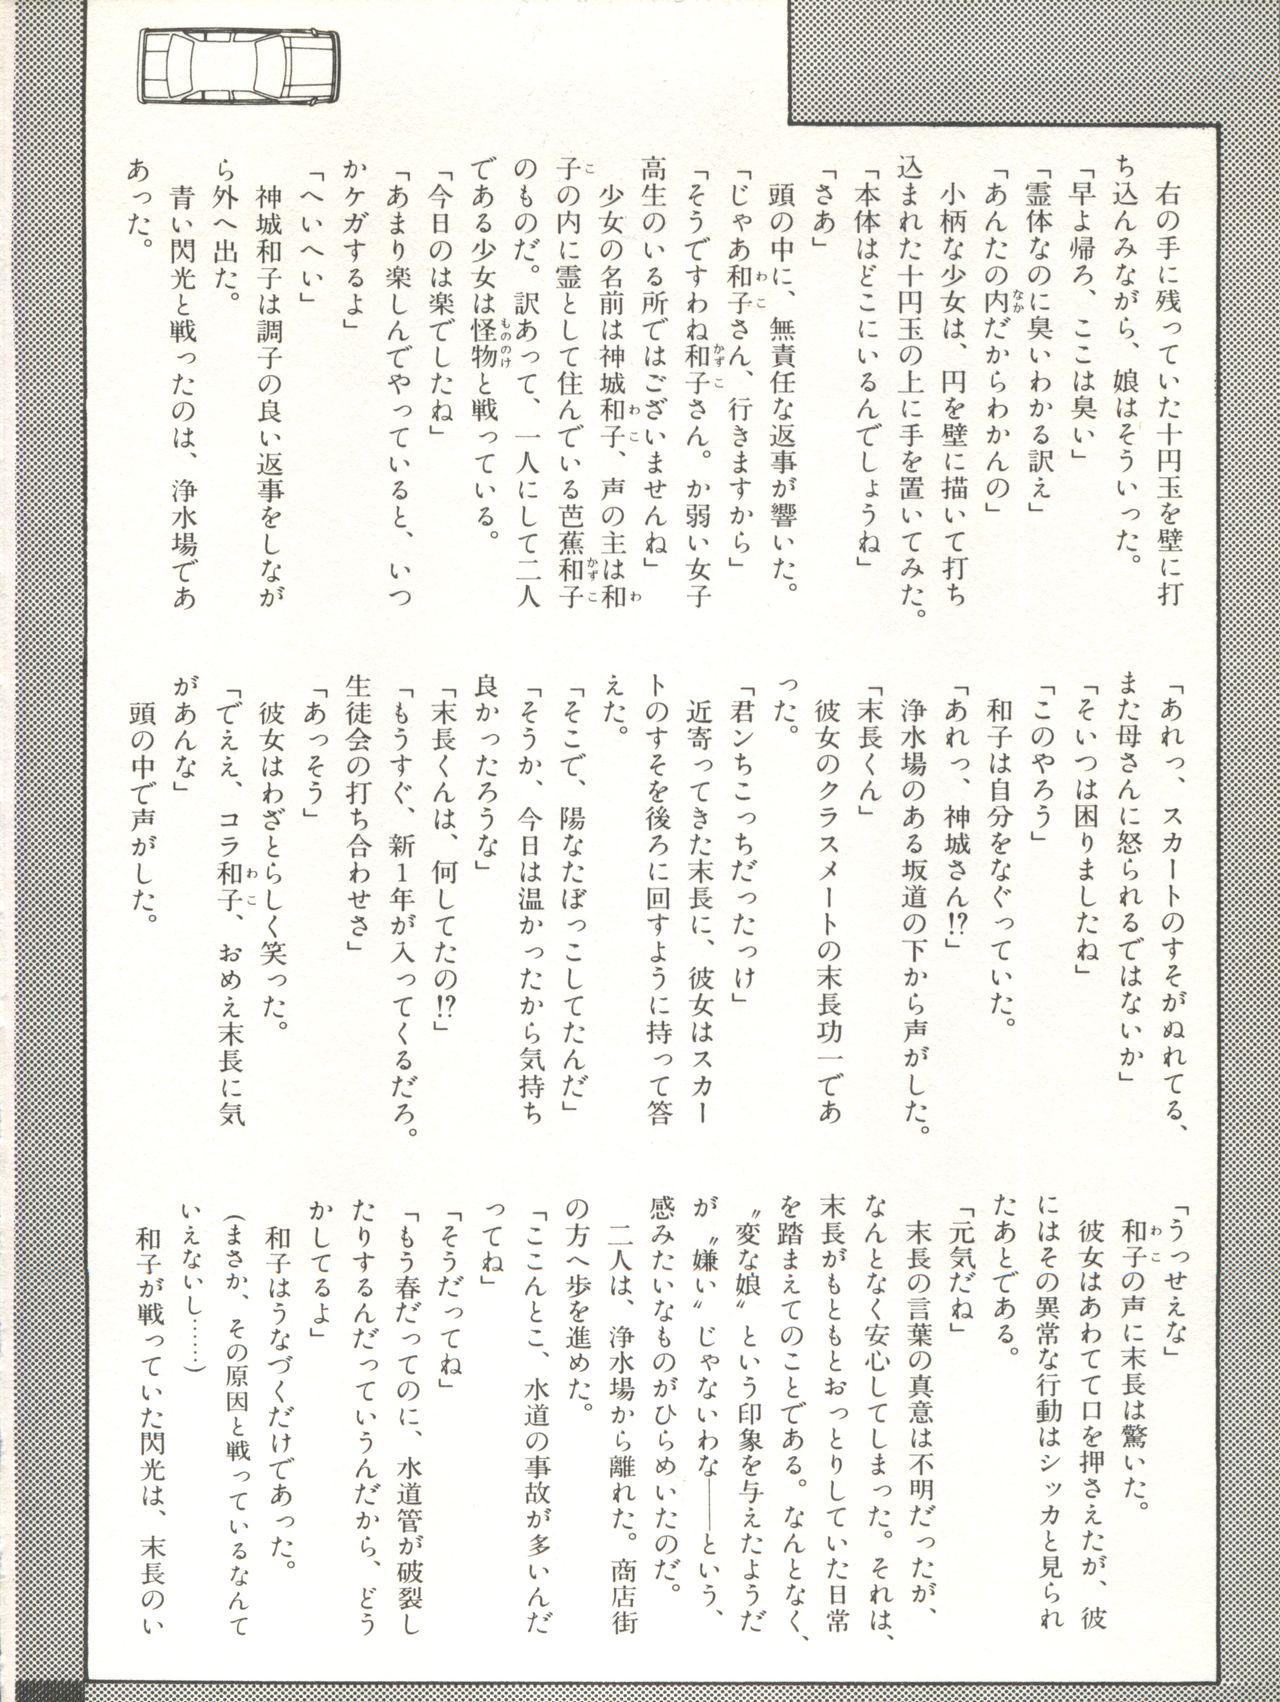 右の手に残っていた十円玉を壁に打
ち込んみながら、娘はそういった。
「早よ帰ろ、ここは臭い」
「霊体なのに臭いわかる訳ぇ」
「あんたの内だからわかんの」
小柄な少女は、円を壁に描いて打ち
込まれた十円玉の上に手を置いてみた。
「本体はどこにいるんでしょうね」
「さあ」
頭の中に、無責任な返事が響いた。
「じゃあ和子さん、行きますから」
「そうですわね和子さん。か弱い女子
高生のいる所ではございませんね」
少女の名前は神城和子、声の主は和
子の内に霊として住んでいる芭蕉和子
のものだ。訳あって、一人にして二人
である少女は怪物と戦っている。
「今日のは楽でしたね」
「あまり楽しんでやっていると、いつ
かケガするよ」
「へいへい」
神城和子は調子の良い返事をしなが
ら外へ出た。
青い閃光と戦ったのは、浄水場であ
あった。
「あれっ、スカートのすそがぬれてる、
また母さんに怒られるではないか」
「そいつは困りましたね」
「このやろう」
和子は自分をなぐっていた。
「あれっ、神城さん!?」
浄水場のある坂道の下から声がした。
「末長くん」
彼女のクラスメートの末長功一であ
った。
「君ンちこっちだったっけ」
近寄ってきた末長に、彼女はスカー
トのすそを後ろに回すように持って答
えた。
「そこで、陽なたぼっこしてたんだ」
「そうか、今日は温かったから気持ち
良かったろうな」
「末長くんは、何してたの!?」
「もうすぐ、新1年が入ってくるだろ。
生徒会の打ち合わせさ」
「あっそう」
彼女はわざとらしく笑った。
「でええ、コラ和子、おめえ末長に気
があんな」
頭の中で声がした。
「うっせえな」
和子の声に末長は驚いた。
彼女はあわてて口を押さえたが、彼
にはその異常な行動はシッカと見られ
たあとである。
「元気だね」
末長の言葉の真意は不明だったが、
なんとなく安心してしまった。それは、
末長がもともとおっとりしていた日常
を踏まえてのことである。なんとなく、
〝変な娘〟という印象を与えたようだ
が〝嫌い〟じゃないわな——という、
感みたいなものがひらめいたのだ。
二人は、浄水場から離れた。商店街
の方へ歩を進めた。
「ここんとこ、水道の事故が多いんだ
ってね」
「そうだってね」
「もう春だってのに、水道管が破裂し
たりするんだっていうんだから、どう
かしてるよ」
和子はうなづくだけであった。
(まさか、その原因と戦っているなんて
いえないし……)
和子が戦っていた閃光は、末長のい